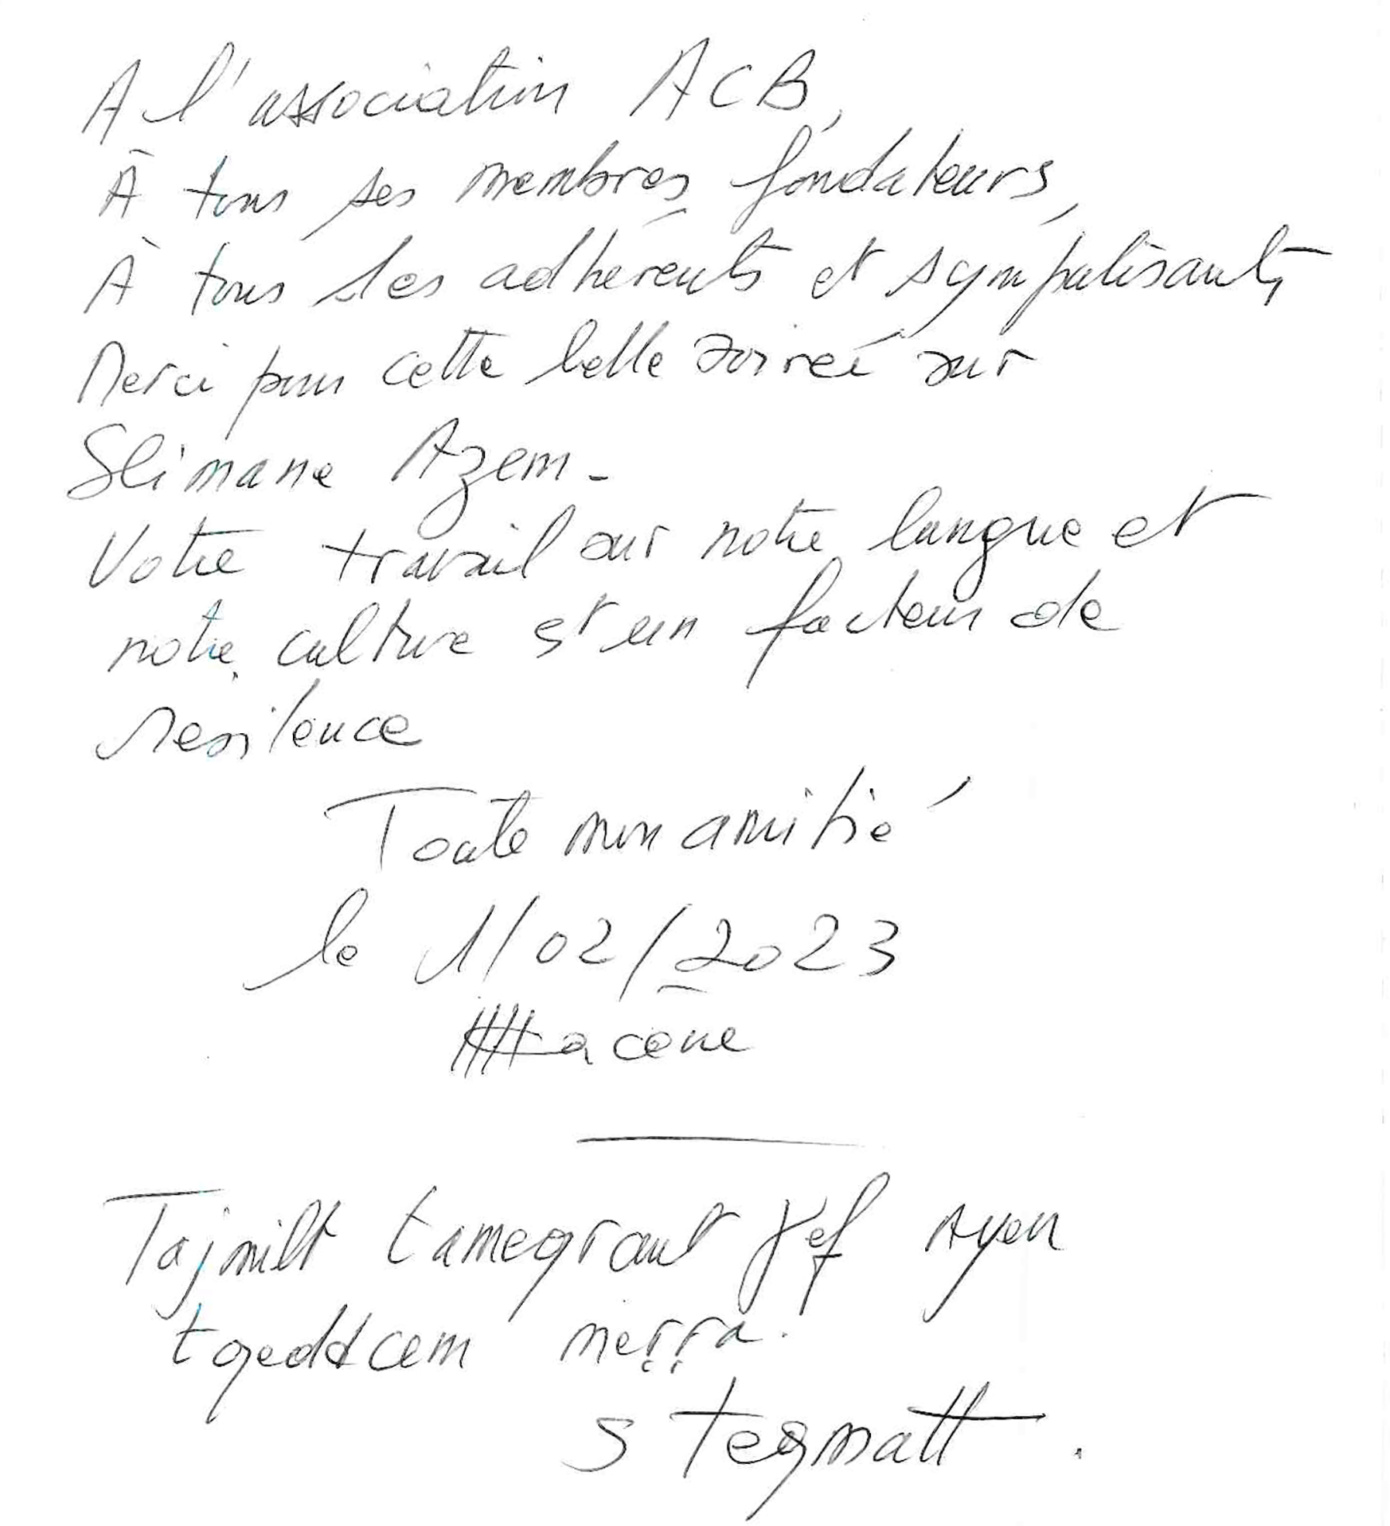 A l'association ACB,
À tous ses membres fondateurs,
À tous les adhérents et sympatisants,
Merci pour cette belle soireé sur
Slimane Azem.
Votre travail sur notre langue et
notre culture est un facteur de
resilence
Toute mon amitié
le 1/02/2023
Hacène
Tajmilt tameqrant ɣef ayen
tqeddcem meṛṛa.
s tegmatt.